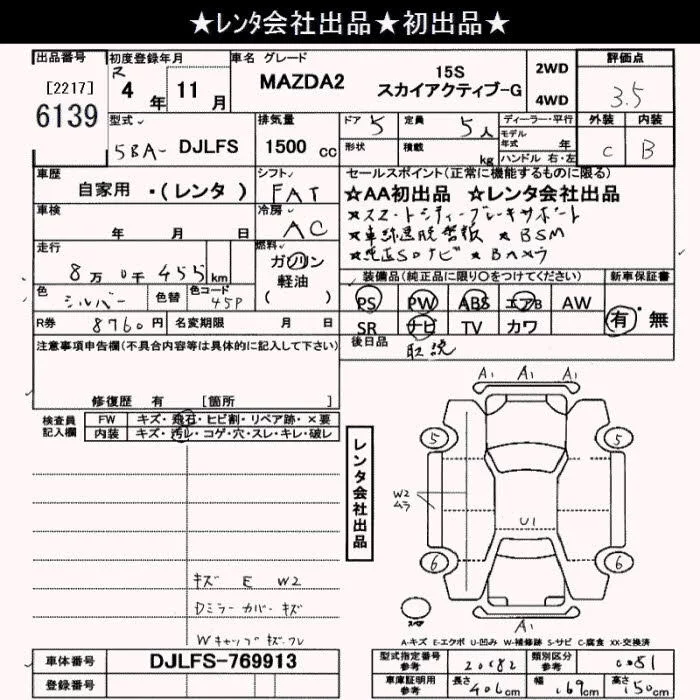 ★レンタ会社出品★初出品★
出品番号 初度登録年月 車名 グレード 評価点
[2217] R 4年 11月 MAZDA2 15S スカイアクティブ-G 2WD 4WD 3.5
6139
型式 排気量 ドア 5 定員 5人 ディーラー・平行 外装 内装
5BA- DJLFS 1500 cc 形状 積載 kg モデル年式 年 C B
ハンドル 右・左
車歴 シフト セールスポイント(正常に機能するものに限る)
自家用 ・(レンタ ) FAT ★AA初出品 ☆レンタ会社出品
車検 冷房 ★スマートシティーブレーキサポート
年 月 日 AC ★車線逸脱警報 ★BSM
走行 燃料 ★純正SDナビ ★Bカメラ
8万 0千 455 km ガソリン 軽油 ( )
装備品(純正品に限り○をつけてください) 新車保証書
色 シルバー 色替 色コード 45P PS PW ABS エアB AW 有・無
R券 8760円 名変期限 月 日 SR ナビ TV カワ
注意事項申告欄(不具合内容等は具体的に記入して下さい) 後日品 取説
修復歴 有 [箇所 ]
検査員記入欄 FW キズ・飛石・ヒビ割・リペア跡・×要
内装 キズ・汚レ・コゲ・穴・スレ・キレ・破レ
レンタ会社出品
A1 A1 A1
5 5
W2 ムラ
U1
6 6
スペア
A1
キズ E W2
Dミラーカバーキズ
Wキャップキズ
A-キズ E-エクボ U-凹み W-補修跡 S-サビ C-腐食 XX-交換済
車体番号 DJLFS-769913 型式指定番号 参考 20682 類別区分 参考 0051
登録番号 車庫証明用 参考 長さ 406cm 幅 169cm 高さ 150cm